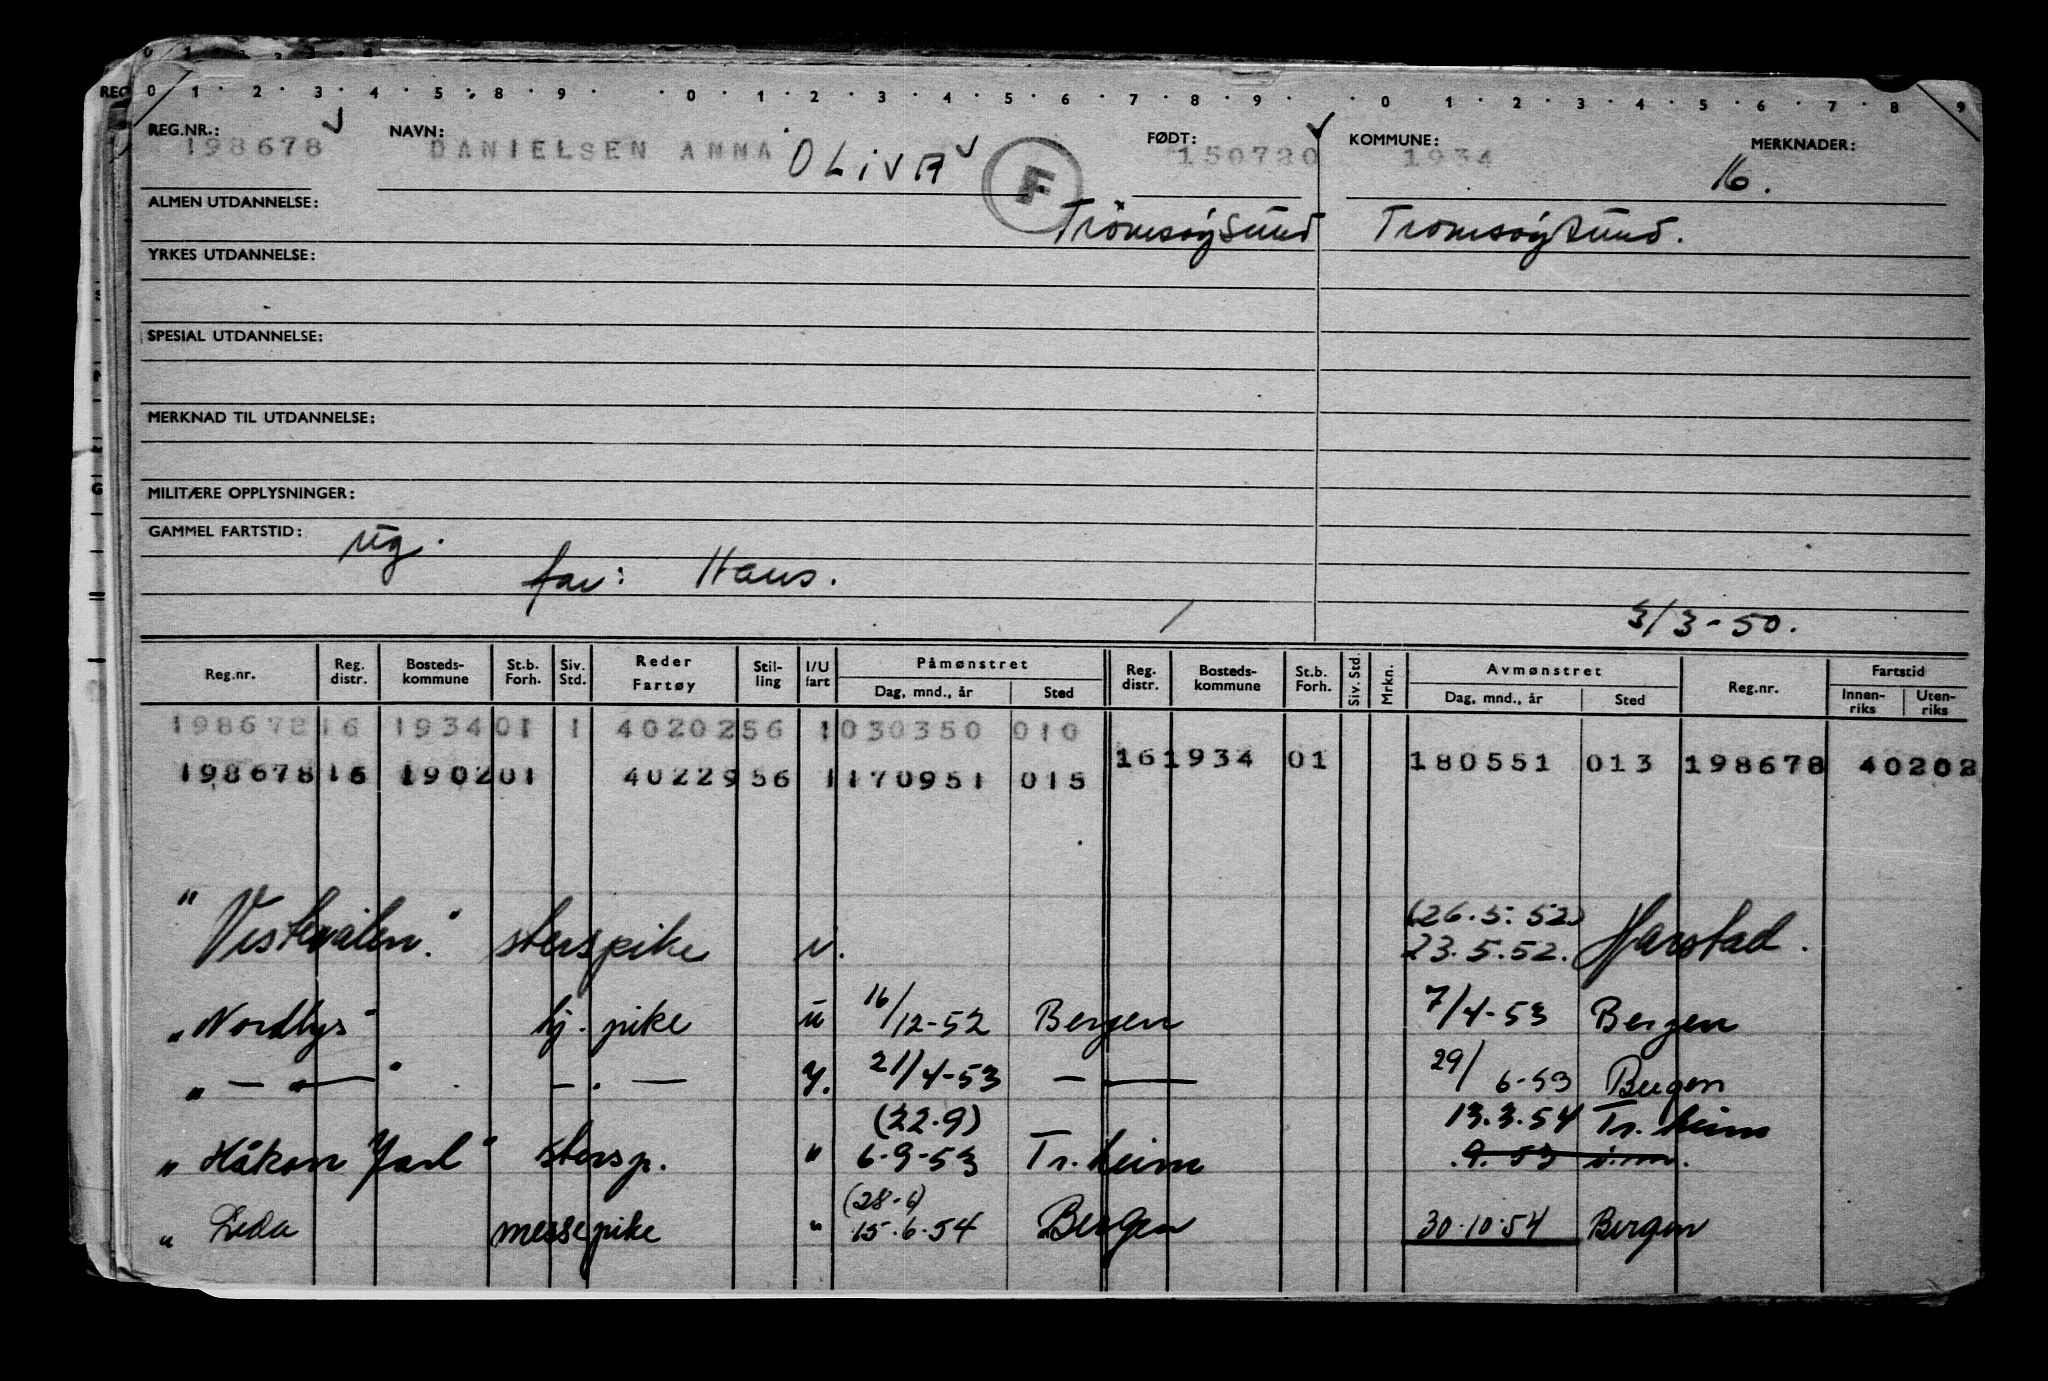 REG 0 1 2 3 4 5 6 8 9 0 1 2 3 4 5 6 7 8 9 0 1 2 3 4 5 6 7 8 9
REG.NR.: 198678 NAVN: DANIELSEN ANNA OLIVA F FØDT: 150720 KOMMUNE: 1934 MERKNADER: 16.
ALMEN UTDANNELSE: Tromsøysund Tromsøysund.
YRKES UTDANNELSE:
SPESIAL UTDANNELSE:
MERKNAD TIL UTDANNELSE:
MILITÆRE OPPLYSNINGER:
GAMMEL FARTSTID:
far: Hans.
3/3-50.
Reg.nr. Reg. distr. Bosteds-kommune St.b. Forh. Siv. Std. Reder Fartøy Stil-ling I/U fart Påmønstret Dag, mnd., år Sted Reg. distr. Bosteds-kommune St.b. Forh. Siv. Std. Mrkn. Avmønstret Dag, mnd., år Sted Reg.nr. Fartstid Innen-riks Uten-riks
198678 16 1934 01 1 40202 56 1 030350 010
16 1934 01 180551 013 198678 40202
198678 16 1902 01 40229 56 1 170951 015
(26.5.52)
"Vesterålen". sterspike 23.5.52. Harstad.
"Nordlys" hj. pike u 16/12-52 Bergen 7/4-53 Bergen
" — " — " — . — 21/4-53 — — 29/6-53 Bergen
(22.9) 13.3.54 Tr.heim
"Håkon Jarl" stersp. " 6-9-53 Tr.heim .9.53
(28-6)
" Leda messepike " 15.6.54 Bergen 30.10.54 Bergen